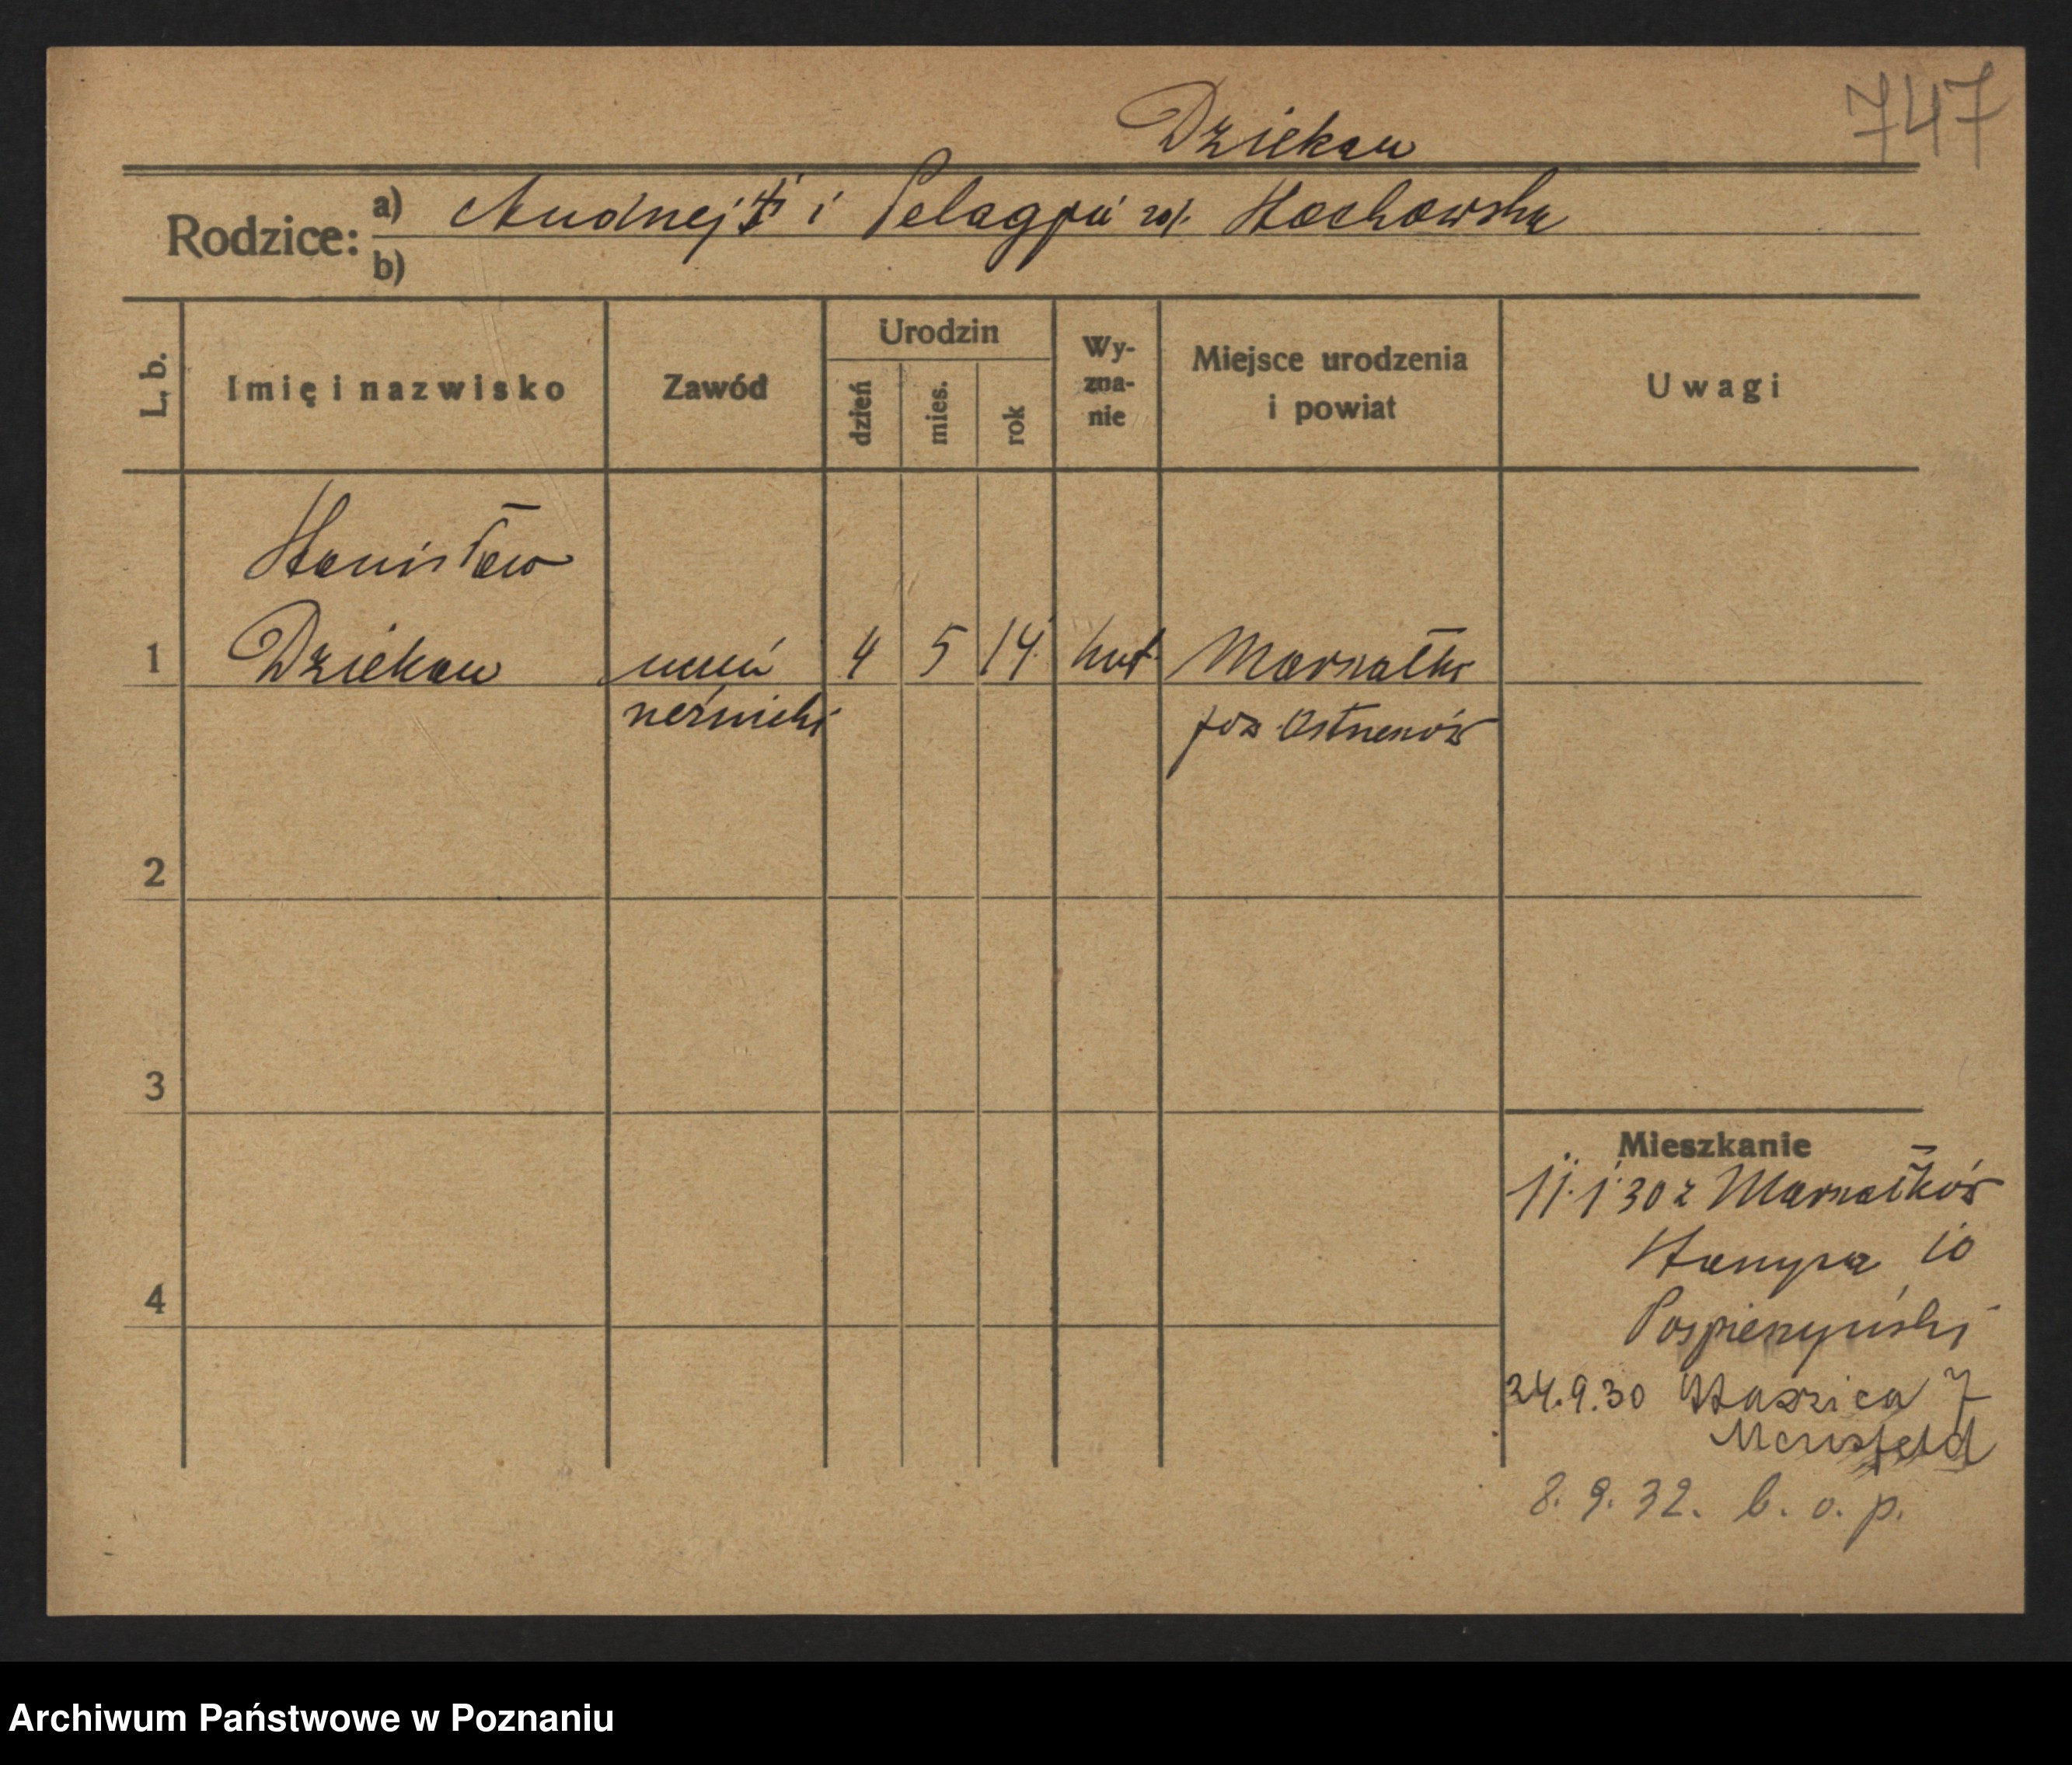 747
Dziekan
Rodzice: a) Andrzej i Pelagia roż. Stachowska
b)
L. b.
Imię i nazwisko
Zawód
Urodzin
dzień
mies.
rok
Wy-
zna-
nie
Miejsce urodzenia
i powiat
Uwagi
Stanisław
1 Dziekan uczeń 4 5 14 kat. Marszałki
rzeźnicki pow Ostrzeszów
2
3
4
Mieszkanie
11.1.30 z Marszałków
10
Pospieszyński
24.9.30 Staszica 7
8. 9. 32. b. o. p.
Archiwum Państwowe w Poznaniu